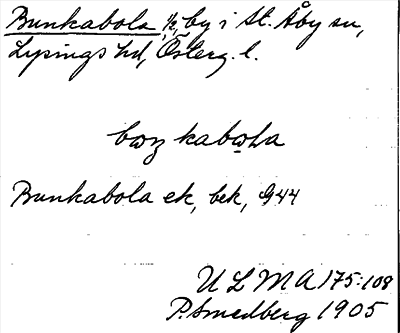 Bunkabola, by i St. Åby sn,
Lysings hd, Österg. l.
Bunkabola ek, bek, G44
ULMA 175:108
P. Smedberg 1905